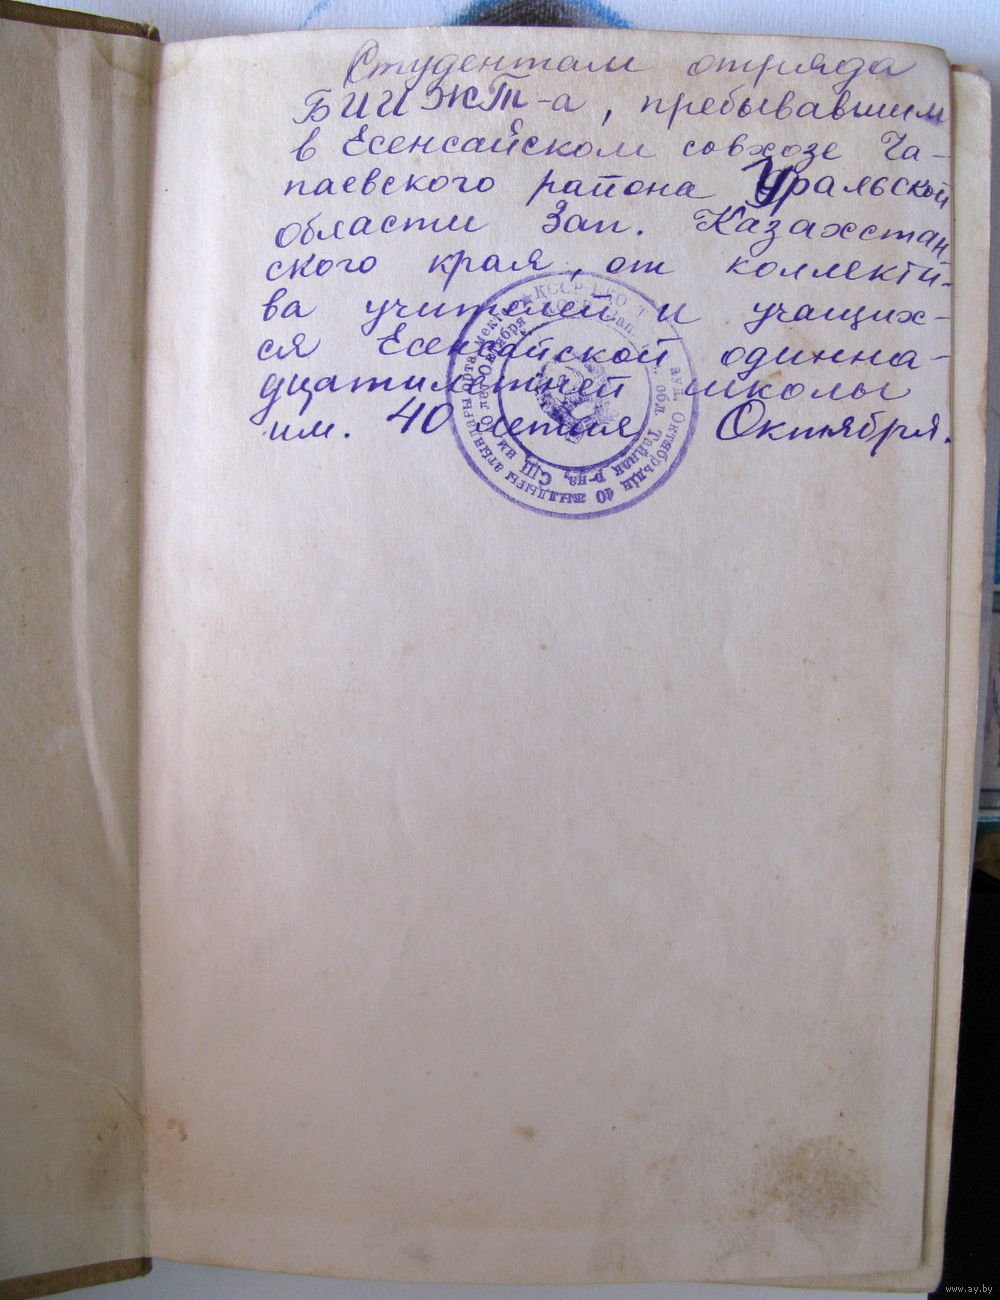 Студентам отряда
БИИЖТ-а, пребывавшим
в Есенсайском совхозе Ча-
паевского района Уральской
области Зап. Казахстан-
ского края, от коллекти-
ва учителей и учащих-
ся Есенсайской одинна-
дцатилетней школы
им. 40 летия Октября.
КССР
Октябрьдің 40 жылдығы атындағы орта мектеп
обл. Тайпак р-на, СШ им
лет Октября
www.ay.by